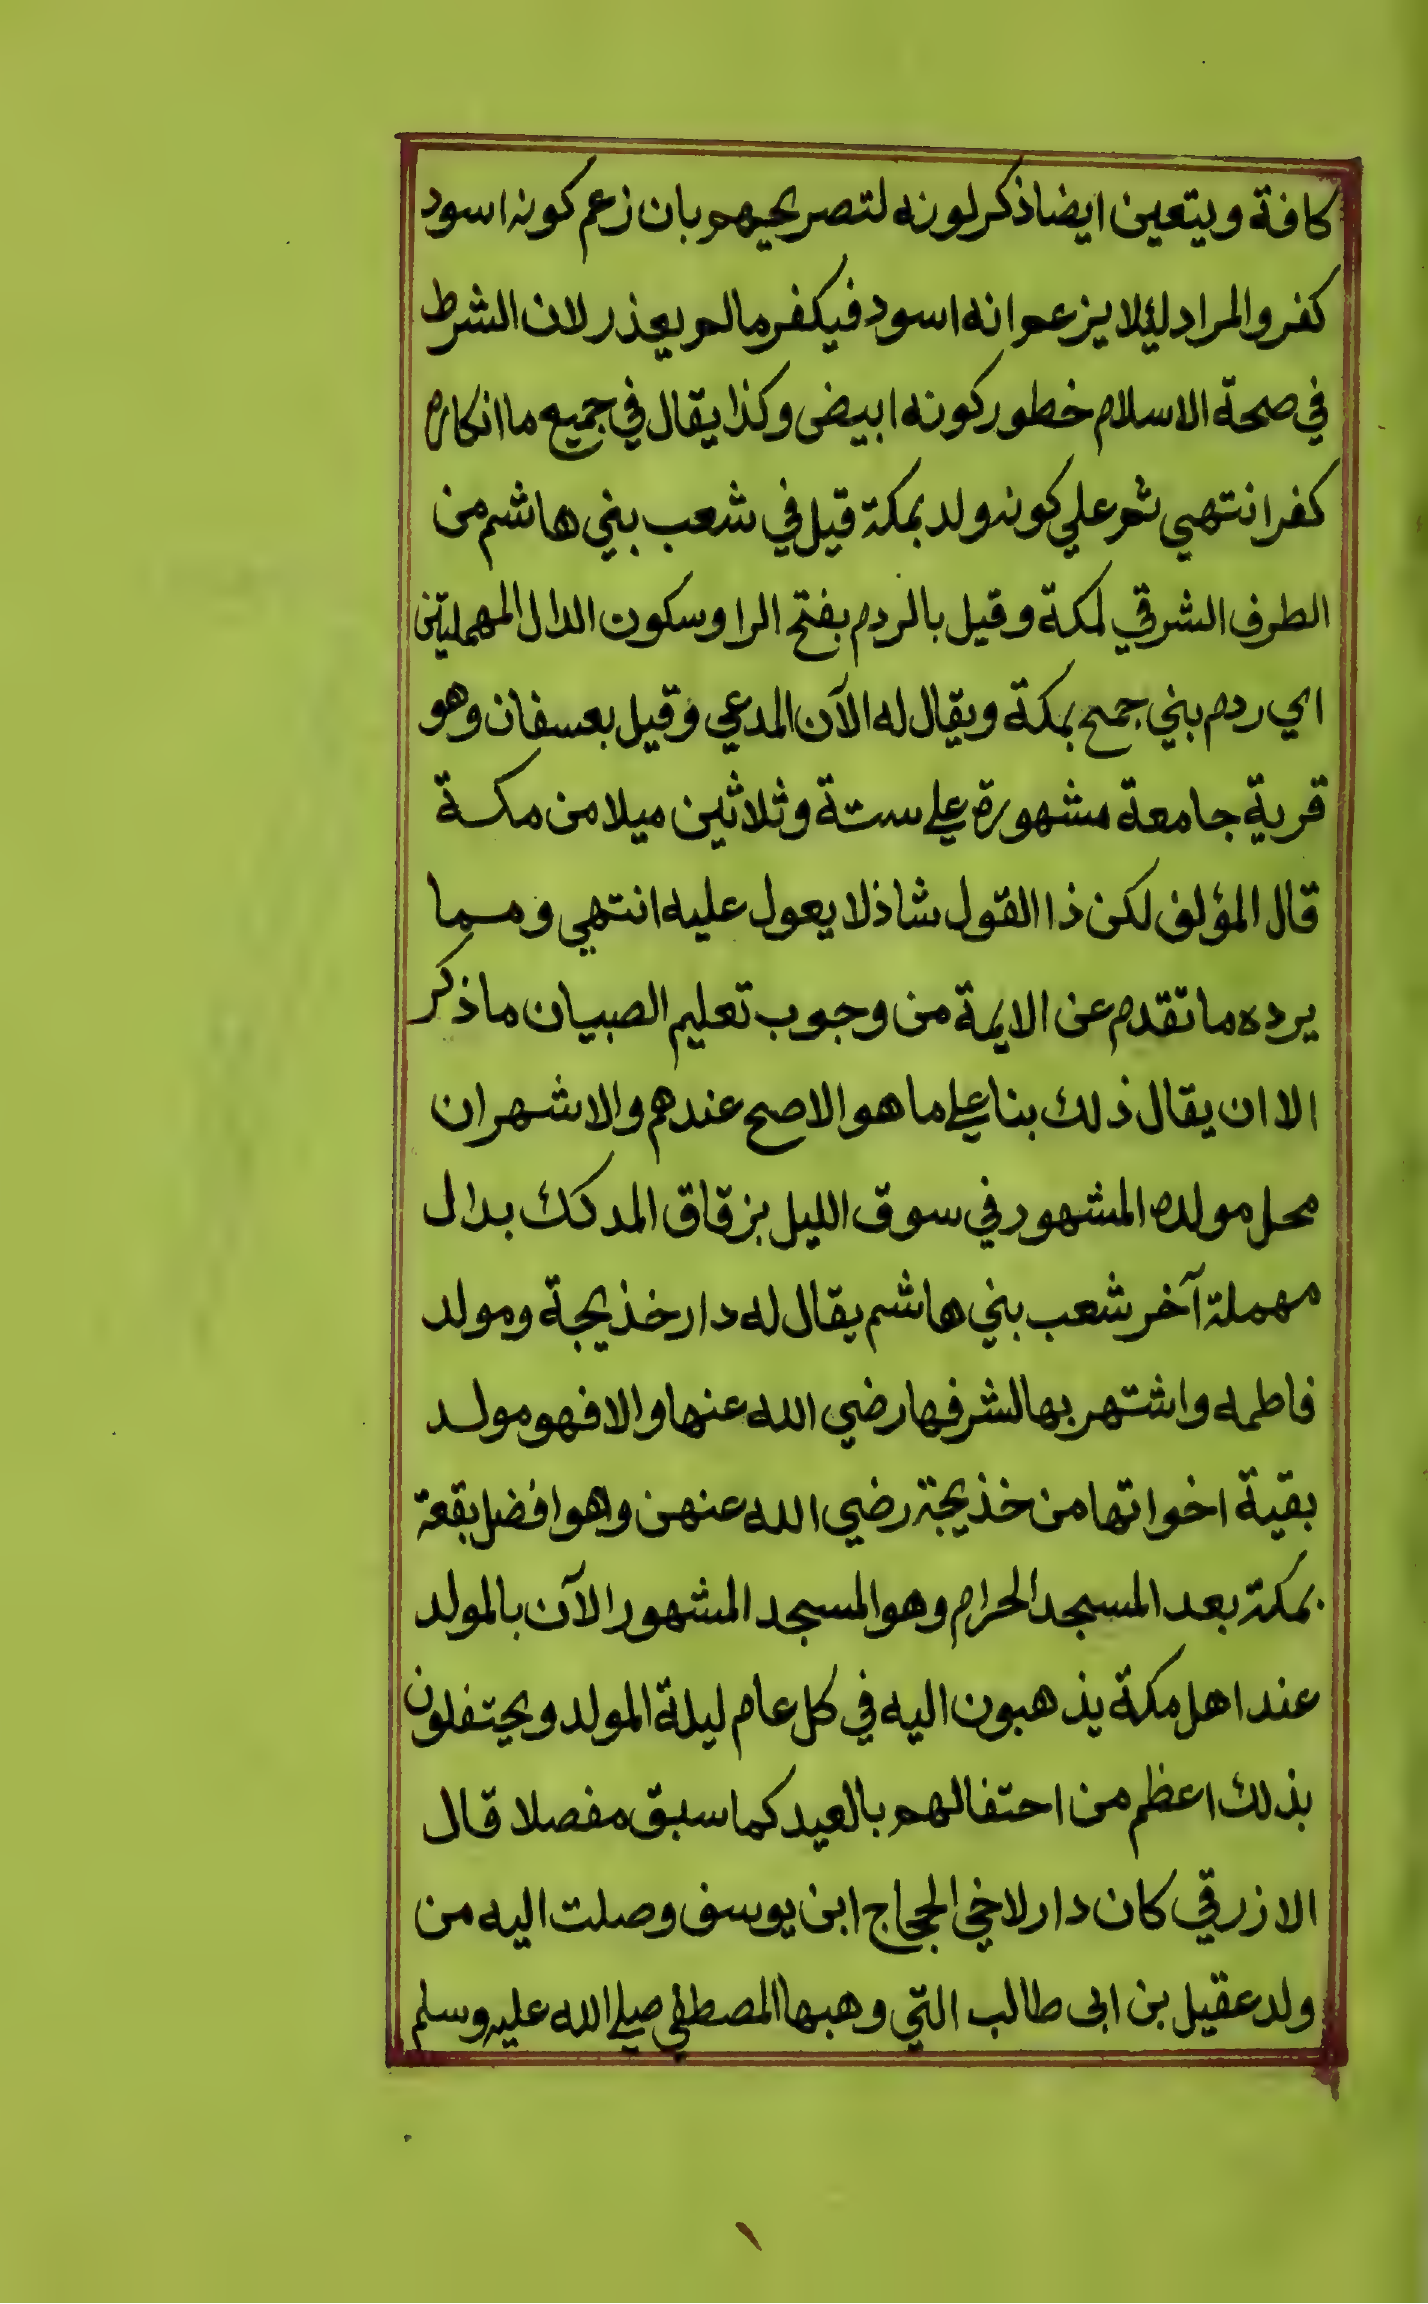 كافة ويتعين ايضا ذكر لونه لتصريحهم بان زعم كونه اسود
كفر والمراد ليلا يزعم انه اسود فيكفر ما لم يعذر لان الشرط
في صحة الاسلام خطور كونه ابيض وكذا يقال في جميع ما انكاره
كفر انتهي ثم علي كونه ولد بمكة قيل في شعب بني هاشم من
الطرف الشرقي لمكة وقيل بالردم بفتح الرا وسكون الدال المهملتين
اي ردم بني جمح بمكة ويقال له الآن المدعي وقيل بعسفان وهو
قرية جامعة مشهورة علي ستة وثلاثين ميلا من مكة
قال المؤلف لكن ذا القول شاذ لا يعول عليه انتهي ومما
يرده ما تقدم عن الايمة من وجوب تعليم الصبيان ما ذكر
الا ان يقال ذلك بنا علي ما هو الاصح عندهم والاشهر ان
محل مولده المشهور في سوق الليل بزقاق المدكك بدال
مهملة آخر شعب بني هاشم يقال له دار خذيجة ومولد
فاطمه واشتهر بها لشرفها رضي الله عنها والا فهو مولد
بقية اخواتها من خذيجة رضي الله عنهن وهو افضل بقعة
بمكة بعد المسجد الحرام وهو المسجد المشهور الآن بالمولد
عند اهل مكة يذهبون اليه في كل عام ليلة المولد ويحتفلون
بذلك اعظم من احتفالهم بالعيد كما سبق مفصلا قال
الازرقي كان دار لاخي الحجاج ابن يوسف وصلت اليه من
ولد عقيل بن ابى طالب التي وهبها المصطفي صلي الله عليه وسلم